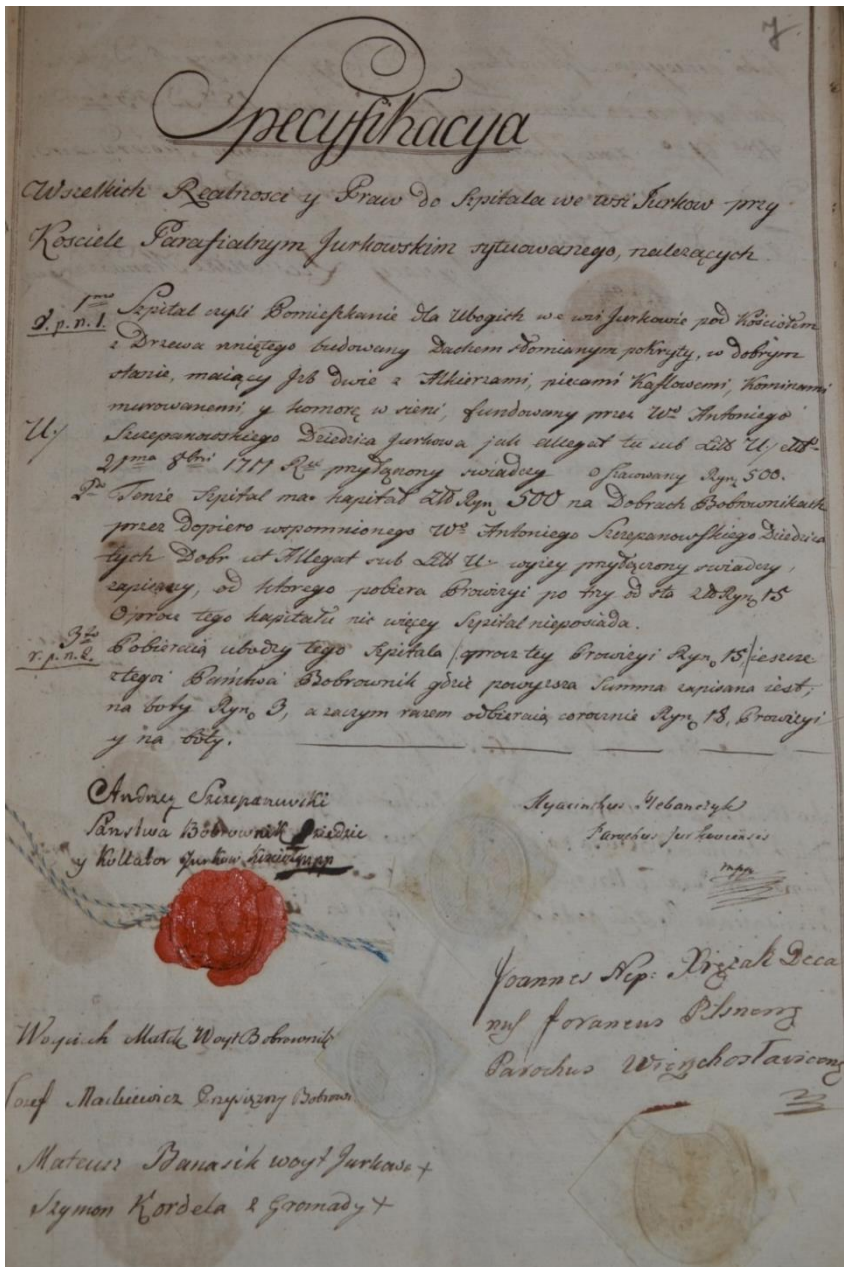 7.
Specyfikacya
Wszelkich Realnosci y Praw do Szpitala we wsi Jurkow przy
Kosciele Parafialnym Jurkowskim sytuowanego, należących.
1mo Szpital czyli Pomieszkanie dla Ubogich we wsi Jurkowie pod Kościołem
p. n. 1. z Drzewa rzniętego budowany Dachem słomianym pokryty, w dobrym
stanie, maiący Jzb dwie z Alkierzami, piecami Kaflowemi, Kominami
murowanemi, y komorę w sieni, fundowany przez Wo Antoniego
U/ Szczepanowskiego Dziedzica Jurkowa jak allegat tu sub Litt U/
21ma 8bri 1711 przyłączony swiadczy oszacowany Ryn 500.
2do Tenże Szpital ma kapitał Ryn 500 na Dobrach Bobrownikach
przez dopiero wspomnionego Wo Antoniego Szczepanowskiego Dziedzica
tych Dobr ut Allegat sub Litt U/ wyżey przyłączony swiadczy,
zapisany, od ktorego pobiera Prowizyi po trzy od sta Ryn 15
Oprocz tego kapitału nic więcey Szpital nieposiada.
3tio Pobieraią ubodzy tego Szpitala /oprocz tey Prowizyi Ryn 15/ ieszcze
r. p. n. 2. z tegoż Państwa Bobrownik gdzie powyższa Summa zapisana iest,
na boty Ryn 3, a zaczym razem odbieraią corocznie Ryn 18, Prowizyi
y na boty.
Andrzey Szczepanowski
Państwa Bobrownik Dziedzic
y Kollator Jurkow
Hyacinthus Glebanczyk
Parochus Jurkoviensis
mpp
Joannes Nep: Xiężak Deca
nus Foraneus Pilsnens
Parochus Wierzchosławicens
Woyciech Matek Woyt Bobrownik
Jozef Mackiewicz Przysiężny Bobrowni
Mateusz Banasik woyt Jurkow +
Szymon Kordela z Gromady +